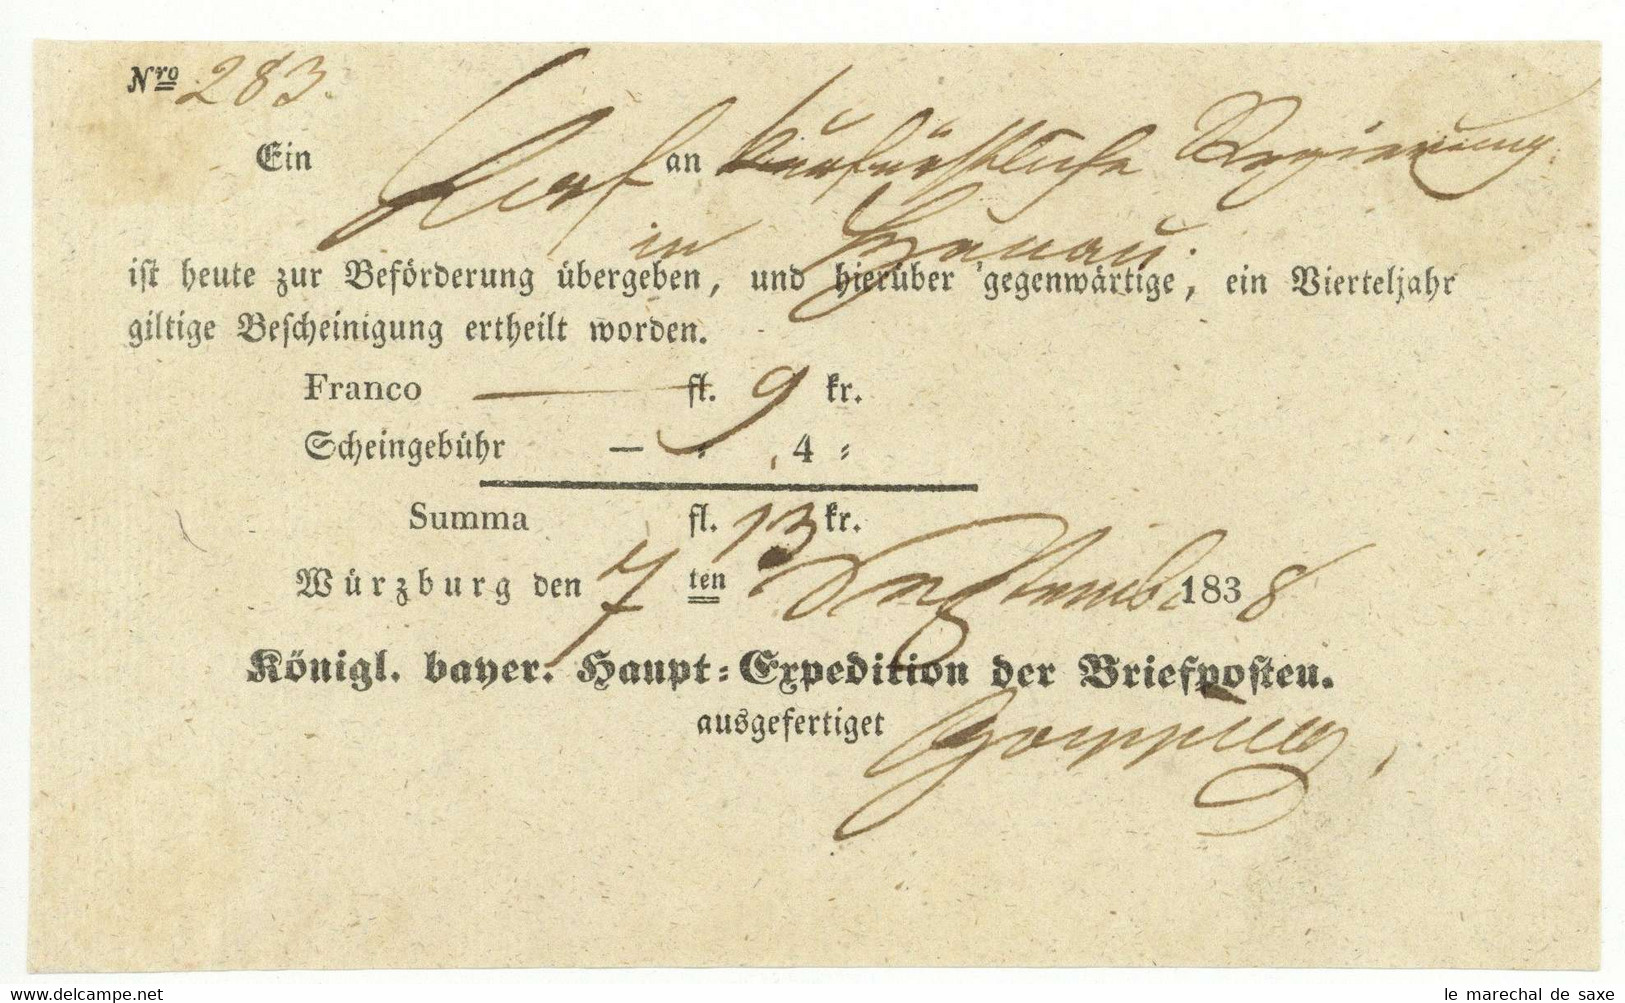 Nro 283.
Ein an Kurfürstliche Regierung
in Hanau.
ist heute zur Beförderung übergeben, und hierüber gegenwärtige, ein Vierteljahr
giltige Bescheinigung ertheilt worden.
Franco — fl. 9 kr.
Scheingebühr — : 4 :
Summa fl. 13 kr.
Würzburg den 7 ten September 1838
Königl. bayer. Haupt-Expedition der Briefposten.
ausgefertiget
www.delcampe.net
le marechal de saxe